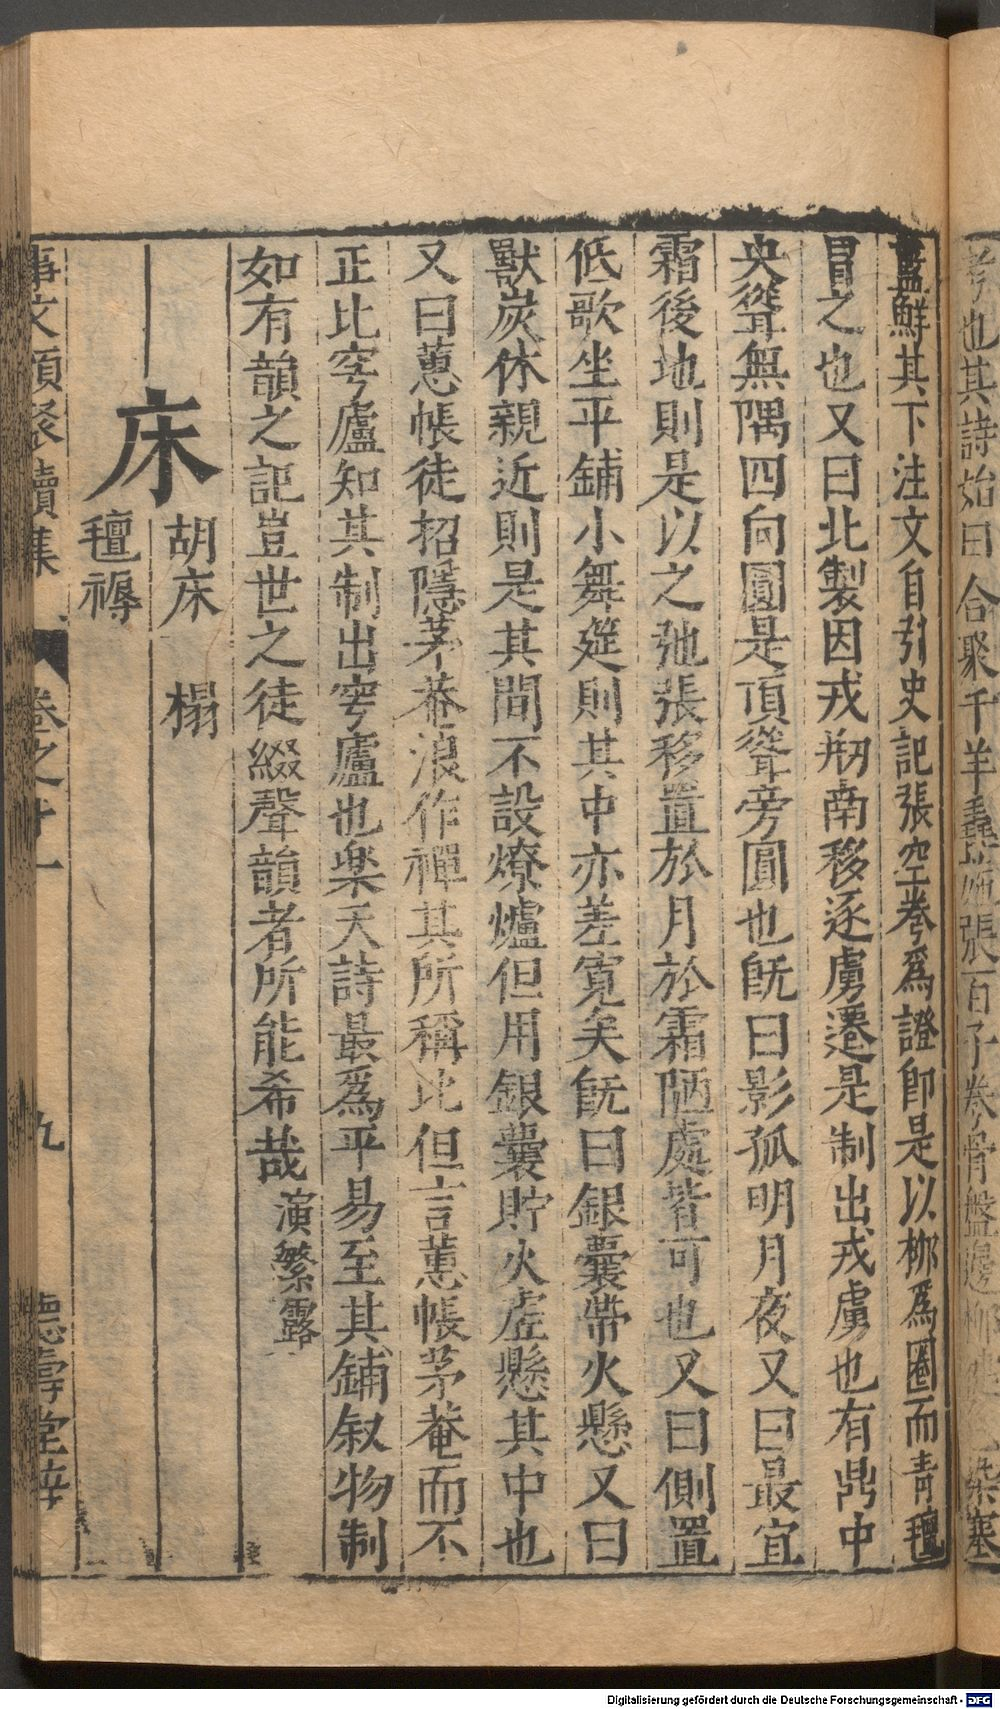 考也其詩始曰合聚千羊毳施張百子卷骨盤邊柳 染塞
藍鮮其下注文自引史記張空弮爲證即是以栁爲圈而青氊
冒之也又曰北製因戎刱南移逐虜遷是制出戎虜也有𣂏中
央聳無隅四向圓是頂聳旁圓也旣曰影孤明月夜又曰最宜
霜後地則是以之弛張移置於月於霜陋處皆可也又曰側置
低歌坐平鋪小舞筵則其中亦差寬矣旣曰銀囊帶火懸又曰
獸炭休親近則是其間不設燎爐但用銀囊貯火虗懸其中也
又曰蕙帳徒招隱茅菴浪作禪其所稱比但言蕙帳茅菴而不
正比穹廬知其制出穹廬也樂天詩最爲平易至其鋪叙物制
如有韻之記豈世之徒綴聲韻者所能希哉演繁露
床
胡床 榻
氊褥
事文類聚續集 卷之十一 九 德壽堂梓
Digitalisierung gefördert durch die Deutsche Forschungsgemeinschaft - DFG